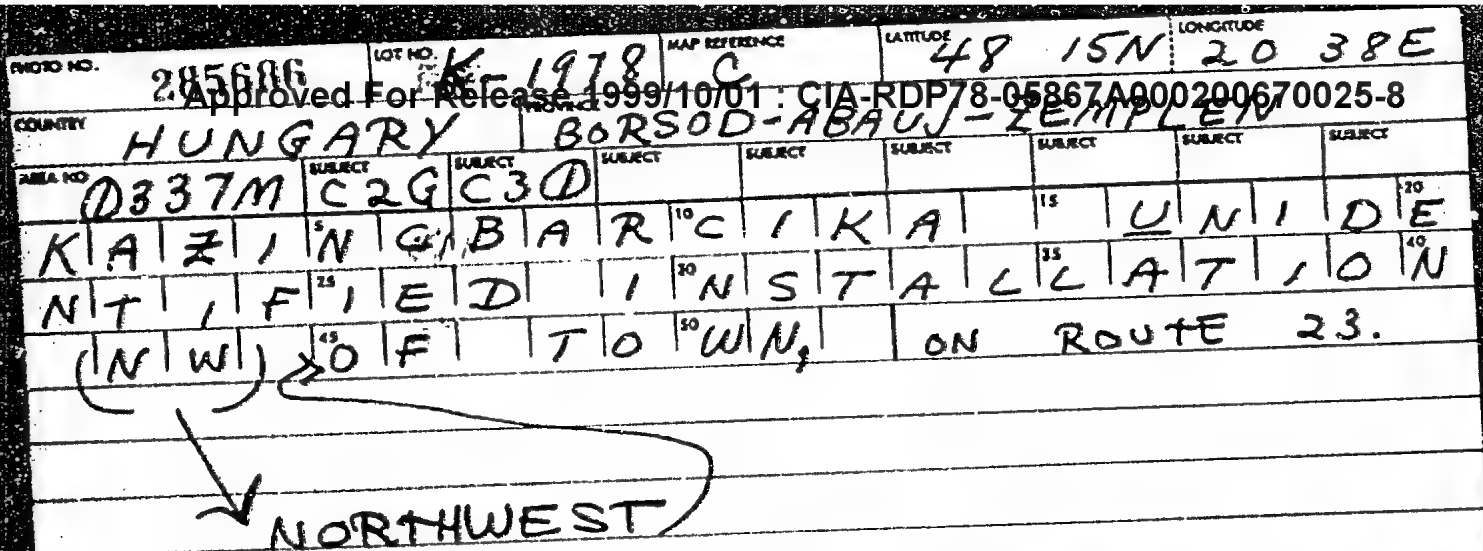 PHOTO NO. 285686 LOT NO. K-1978 MAP REFERENCE C LATITUDE 48 15N LONGITUDE 20 38E
Approved For Release 1999/10/01 : CIA-RDP78-05867A000200670025-8
COUNTRY HUNGARY PROVINCE BORSOD-ABAUJ-ZEMPLEN
AREA NO 0337M SUBJECT C2G SUBJECT C30 SUBJECT SUBJECT SUBJECT SUBJECT SUBJECT SUBJECT
KAZI 5 NGBAR 10 CIKA 15 UNID 20 E
NTIF 25 IED I 30 NSTAL 35 LATIO 40 N
(NW) 45 OF TO 50 WN, ON ROUTE 23.
NORTHWEST